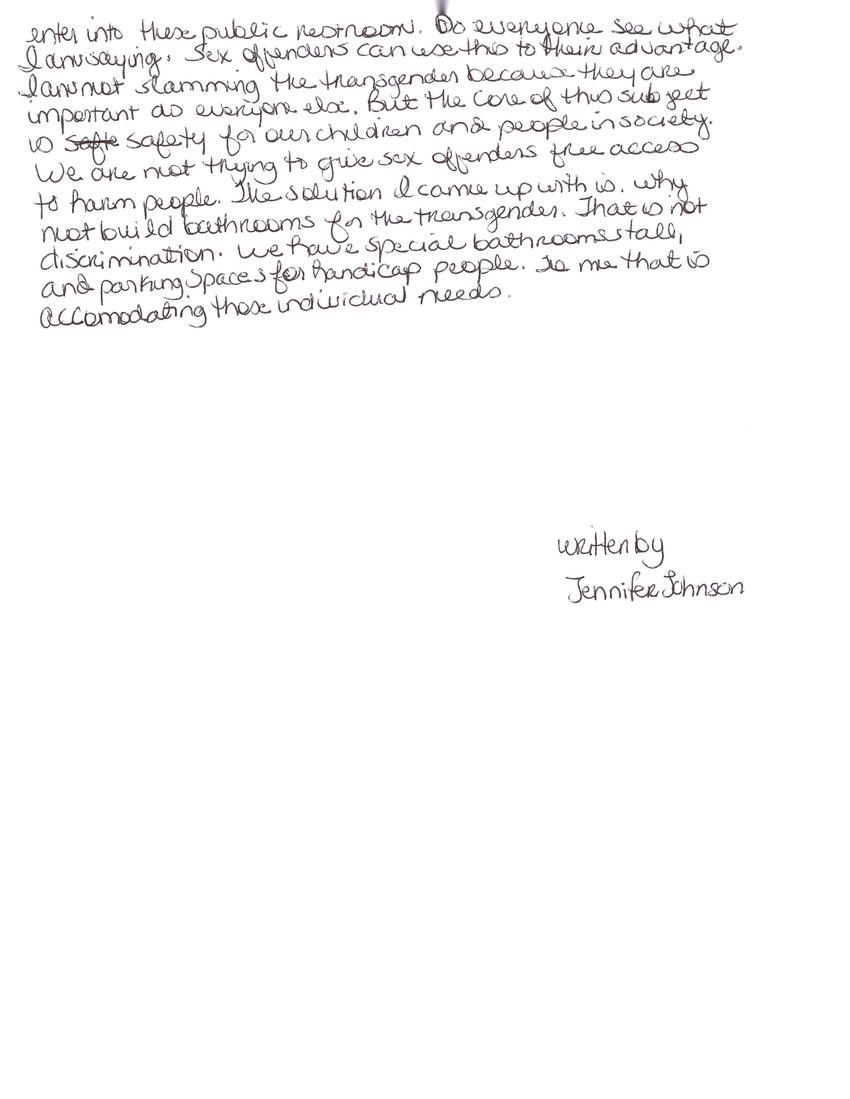 enter into these public restroom. Do everyone see what
I am saying. Sex offenders can use this to their advantage.
I am not slamming the transgender because they are
important as everyone else. But the core of this subject
is safte safety for our children and people in society.
We are not trying to give sex offenders free access
to harm people. The solution I came up with is. why
not build bathrooms for the transgender. That is not
discrimination. we have special bathrooms stall,
and parking spaces for handicap people. To me that is
accomodating those individual needs.
written by
Jennifer Johnson